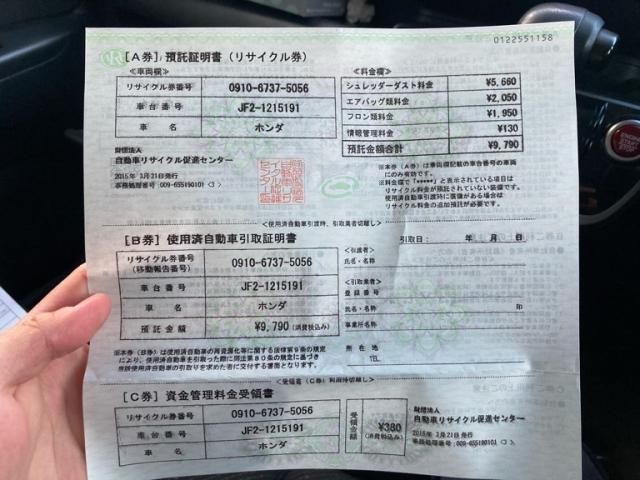 0122551158
[A券] 預託証明書(リサイクル券)
≪車両欄≫
リサイクル券番号 0910-6737-5056
車台番号 JF2-1215191
車名 ホンダ
財団法人
自動車リサイクル促進センター
2015年 3月21日発行
事務処理番号:009-655190101 <3 >
≪料金欄≫
シュレッダーダスト料金 ¥5,660
エアバッグ類料金 ¥2,050
フロン類料金 ¥1,950
情報管理料金 ¥130
預託金額合計 ¥9,790
※本券(A券)は車両欄記載の車台番号の車両
にのみ有効です。
※料金欄で「*****」と表示されている項目は
リサイクル料金が預託されていない装備です。
使用済自動車引渡時に装備がある場合は
リサイクル料金の追加預託が必要です。
<使用済自動車引渡時、引取業者切離し>
[B券] 使用済自動車引取証明書
リサイクル券番号
(移動報告番号) 0910-6737-5056
車台番号 JF2-1215191
車名 ホンダ
預託金額 ¥9,790 (消費税込み)
※本券(B券)は使用済自動車の再資源化等に関する法律第9条の規定
により、使用済自動車を引取った際に同法第80条の規定に基づき
当該使用済自動車の引取りを求めた者に交付する書面となります。
引取日: 年 月 日
≪引渡者≫
氏名・名称
≪引取業者≫
登録番号
氏名・名称 印
事業所名称
所在地
TEL
<受領書(C券)利用時切離し>
[C券] 資金管理料金受領書
リサイクル券番号 0910-6737-5056
車台番号 JF2-1215191
車名 ホンダ
受領金額 ¥380
(消費税込み)
財団法人
自動車リサイクル促進センター
2015年 3月21日発行
事務処理番号:009-655190101 <3 >
ENGINE
START
STOP